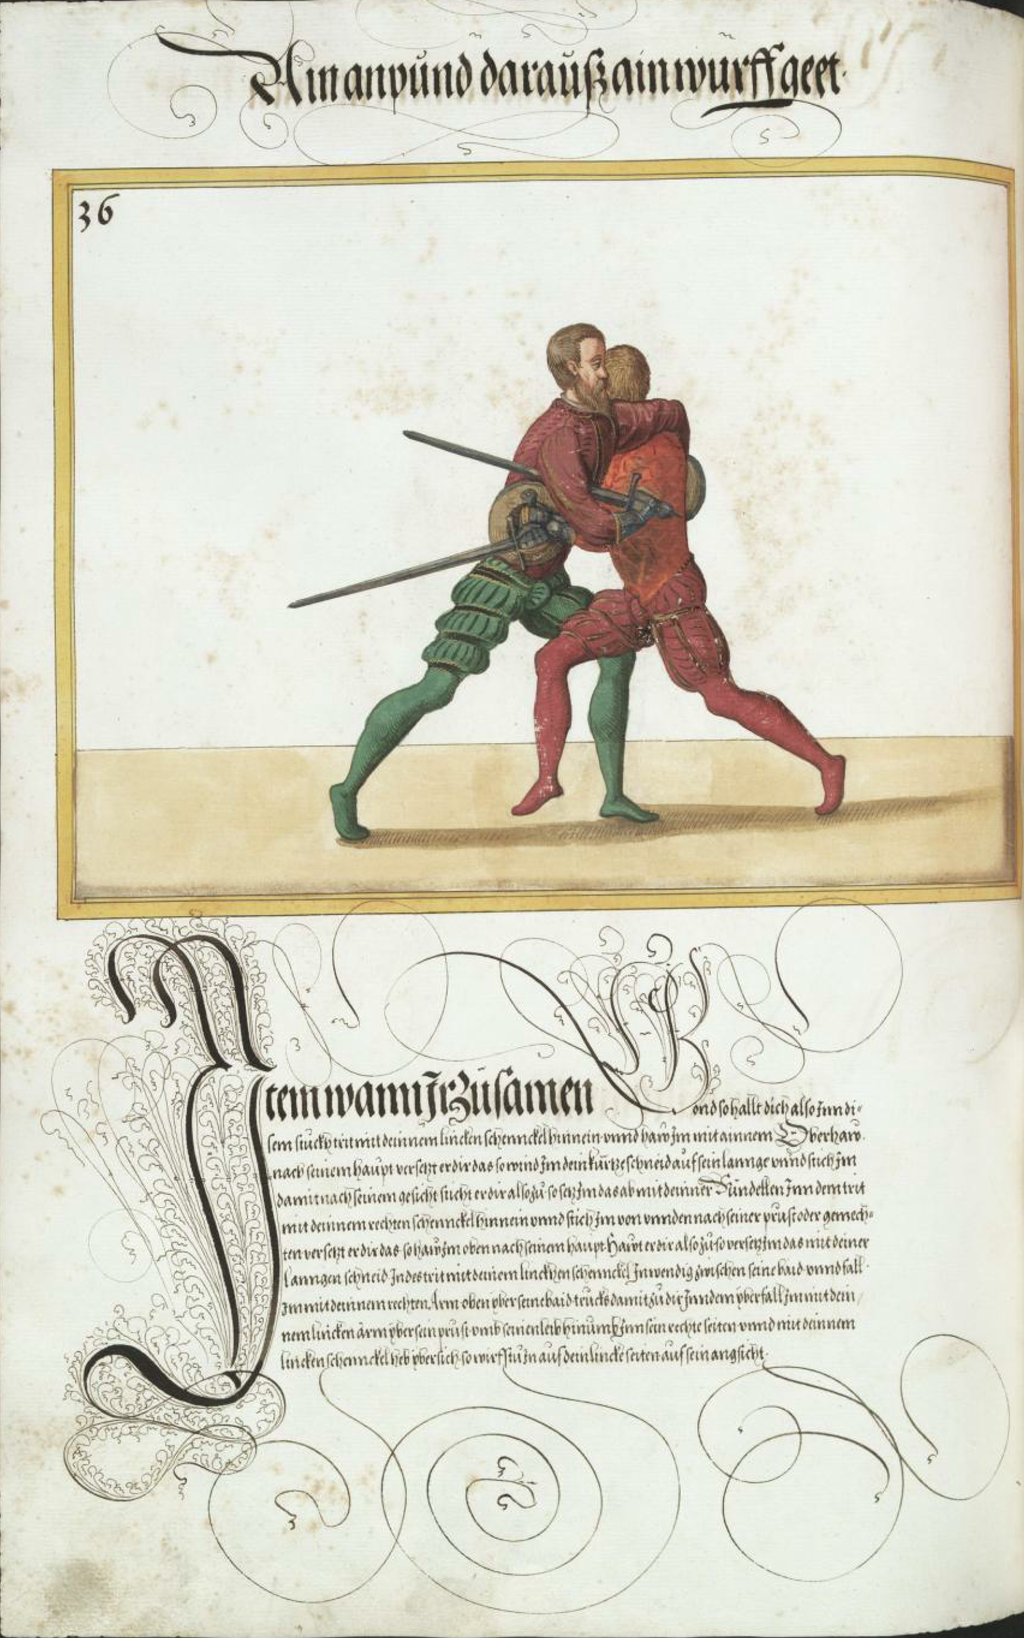 Ain anpund darauß ain wurff geet.
36
Item wann Ir Zusamen kombt
ond so hallt dich also Inn di-
sem stuckh trit mit deinnem lincken schennckel hinnein vnnd haw Im mit ainnem Oberhaw.
nach seinem haupt versetzt er dir das so wind Im dein kurtze schneid auf sein lannge vnnd stich Im
damit nach seinem gesicht sticht er dir also zu so setz Im das ab mit deinner Dundellen Inn dem trit
mit deinnem rechten schennckel hinnein vnnd stich Im von vnnden nach seiner prust oder gemech-
ten versetzt er dir das so haw Im oben nach seinem haupt Hawt er dir also zu so versetz Im das mit deiner
lanngen schneid Indes trit mit deinem linckhen schennckel Inwendig zwischen seine baid vnnd fall.
Im mit deinnem rechten Arm oben yber seine baid truckhs damit zu dir Inn dem yberfall Im mit dein/
nem lincken arm yber sein prust vmb seinen leib hinumb Inn sein rechte seiten vnnd mit deinnem
lincken schennckel heb ybersich so wirfstu In auf dein lincke seiten auf sein angsicht.